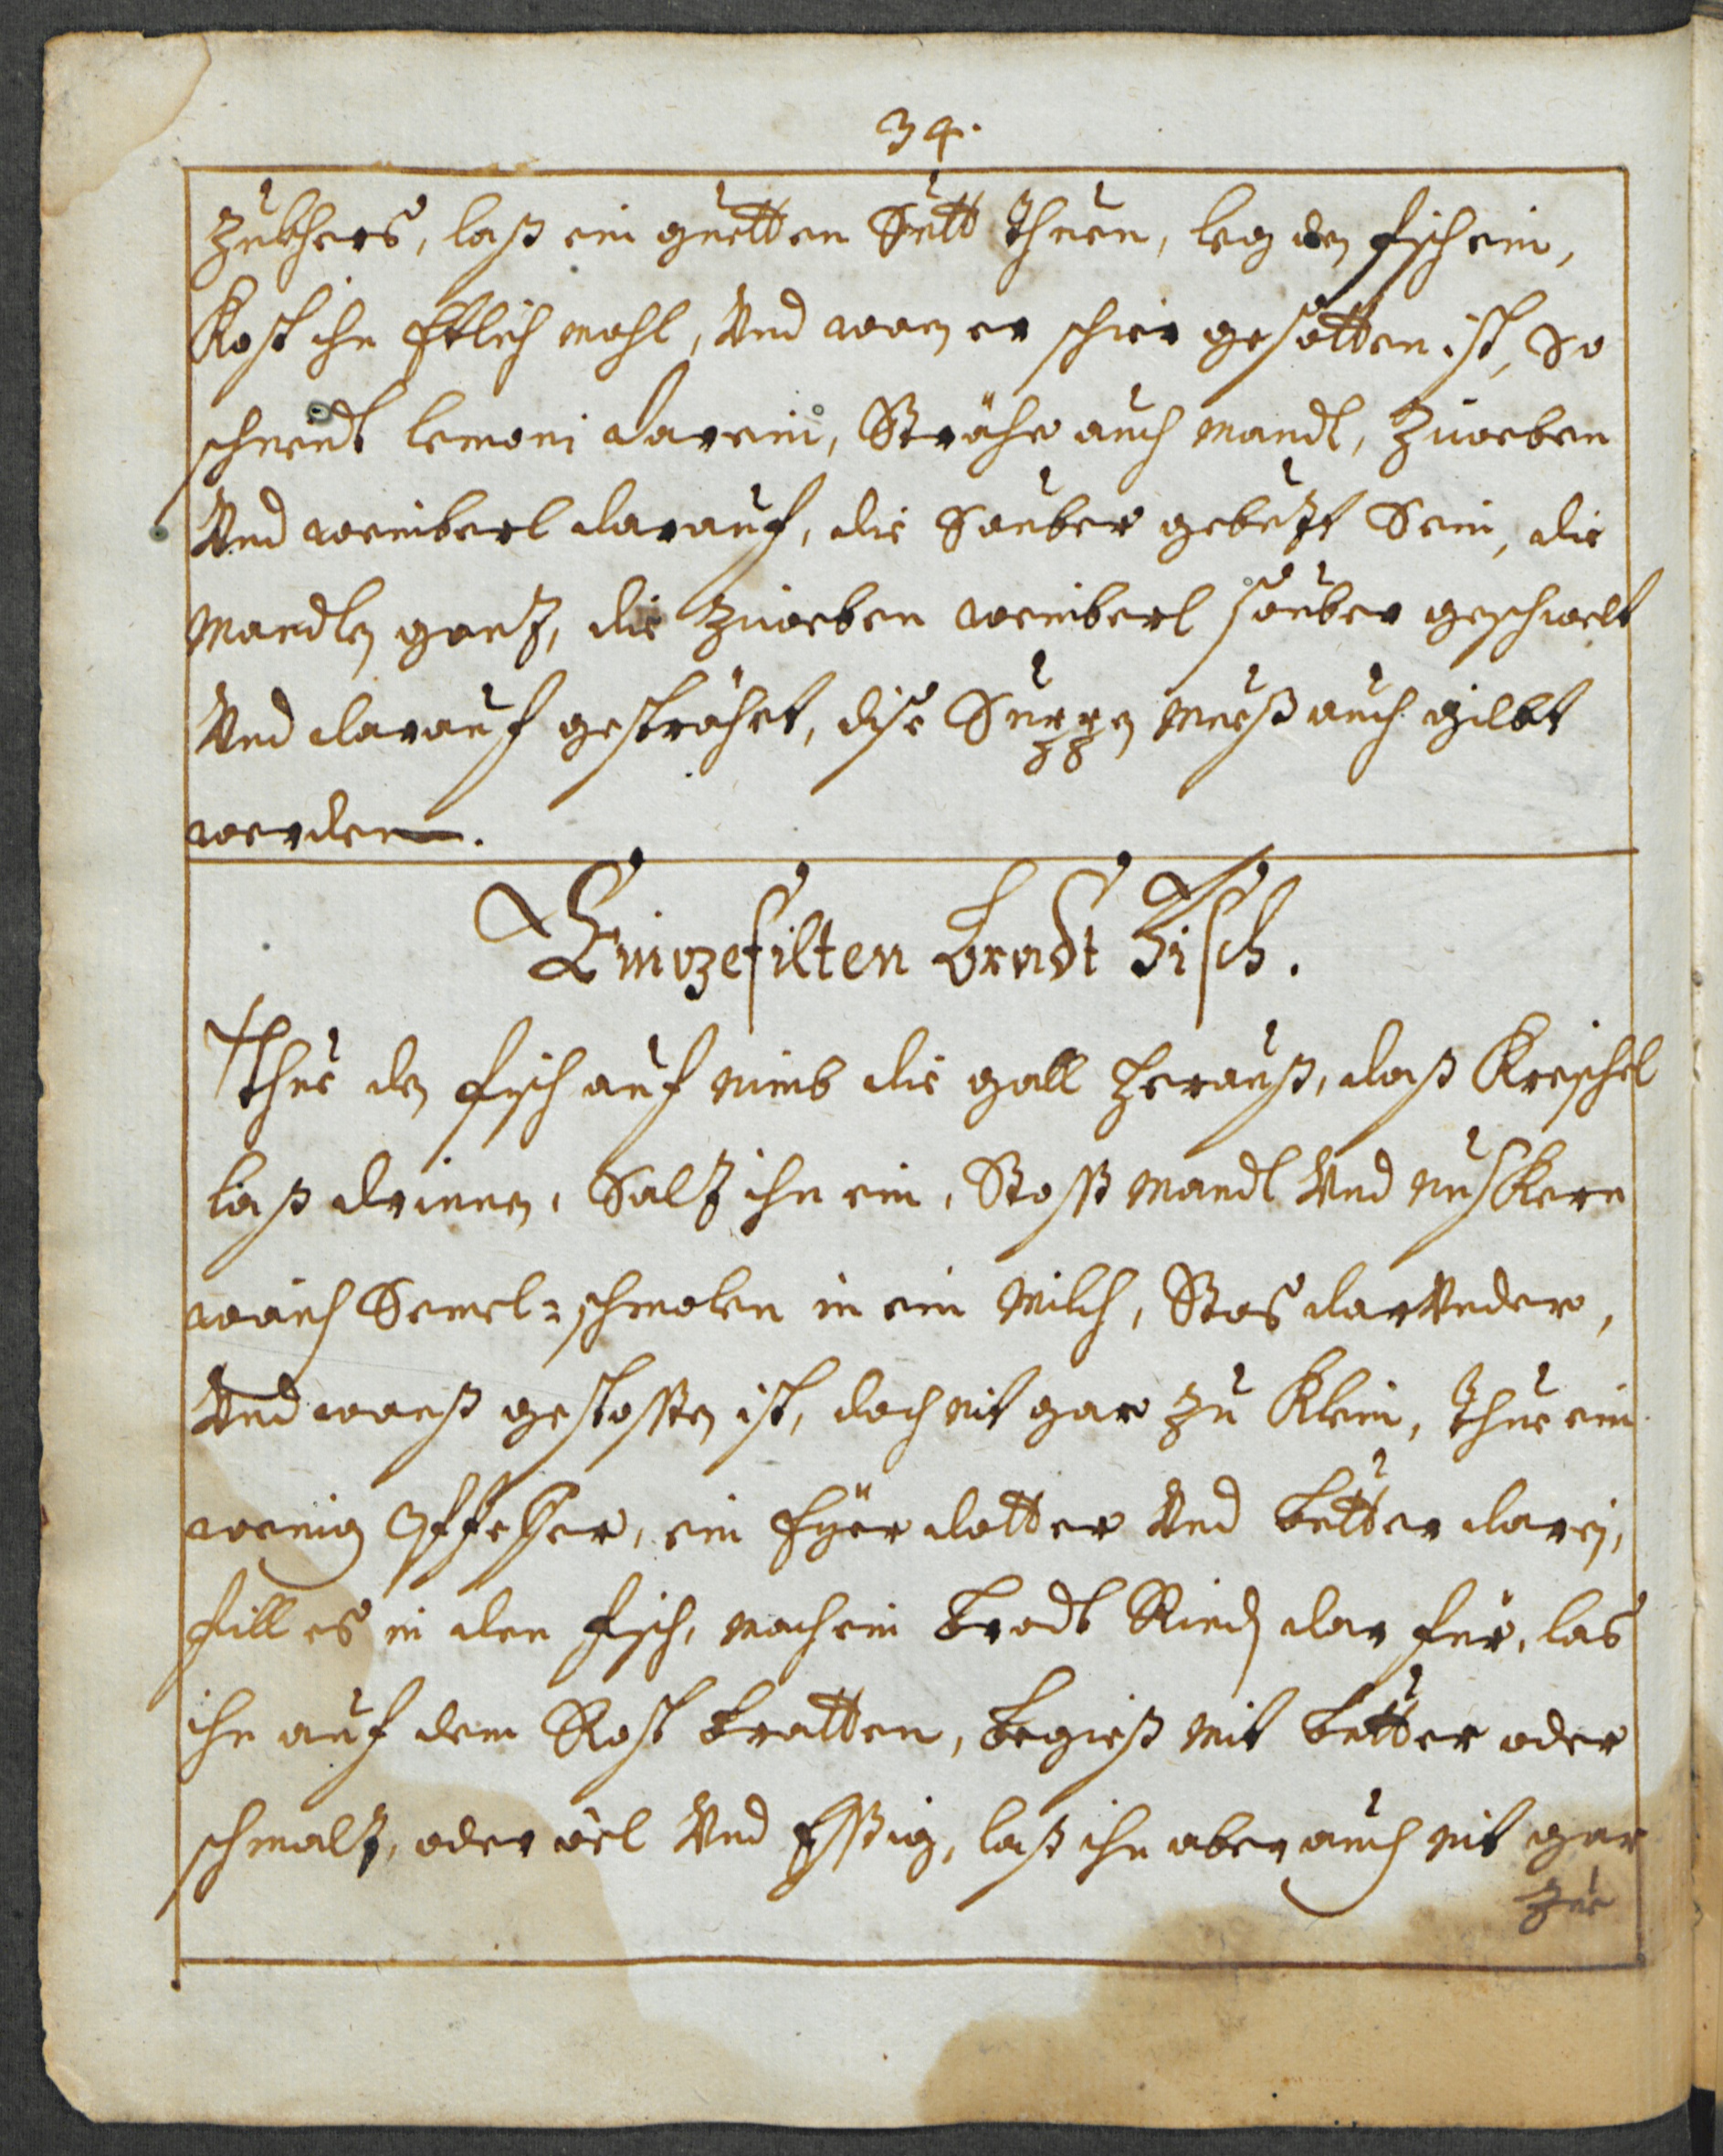 34.
Zukhers, laß ein guetten Sutt Thuen, leg den fisch ein,
Kost ihn Etlich mahl, Und wan er schier gesotten ist, So
schneidt lemoni darein, Strähe auch mandl, Zweben
Und weinberl darauf, die Sauber gebuzt Sein, die
Mandln ganz, die Zweben weinberl sauber geschwelt
Und darauf gesträhet, dise Suppen mueß auch gilbt
werden.
Eingefilten bradt Fisch.
Thue den fisch auf nimb die gall heraus, daß Kreschel
laß drinen, Salz ihn ein, Stoß mandl Und nuskern
waich Semel-schmolen in ein Milch, Stos dar Under,
Und wans gestossen ist, doch nit gar zu Klein, Thue ein
wenig Pfeffer, ein Eyerdotter Und butter darein,
fill es in den fisch, mach ein brodt Rindn dar für, las
ihn auf dem Rost bratten, begies mit butter oder
schmalz, oder öel Und Essig, laß ihn aber auch nit gar
zue